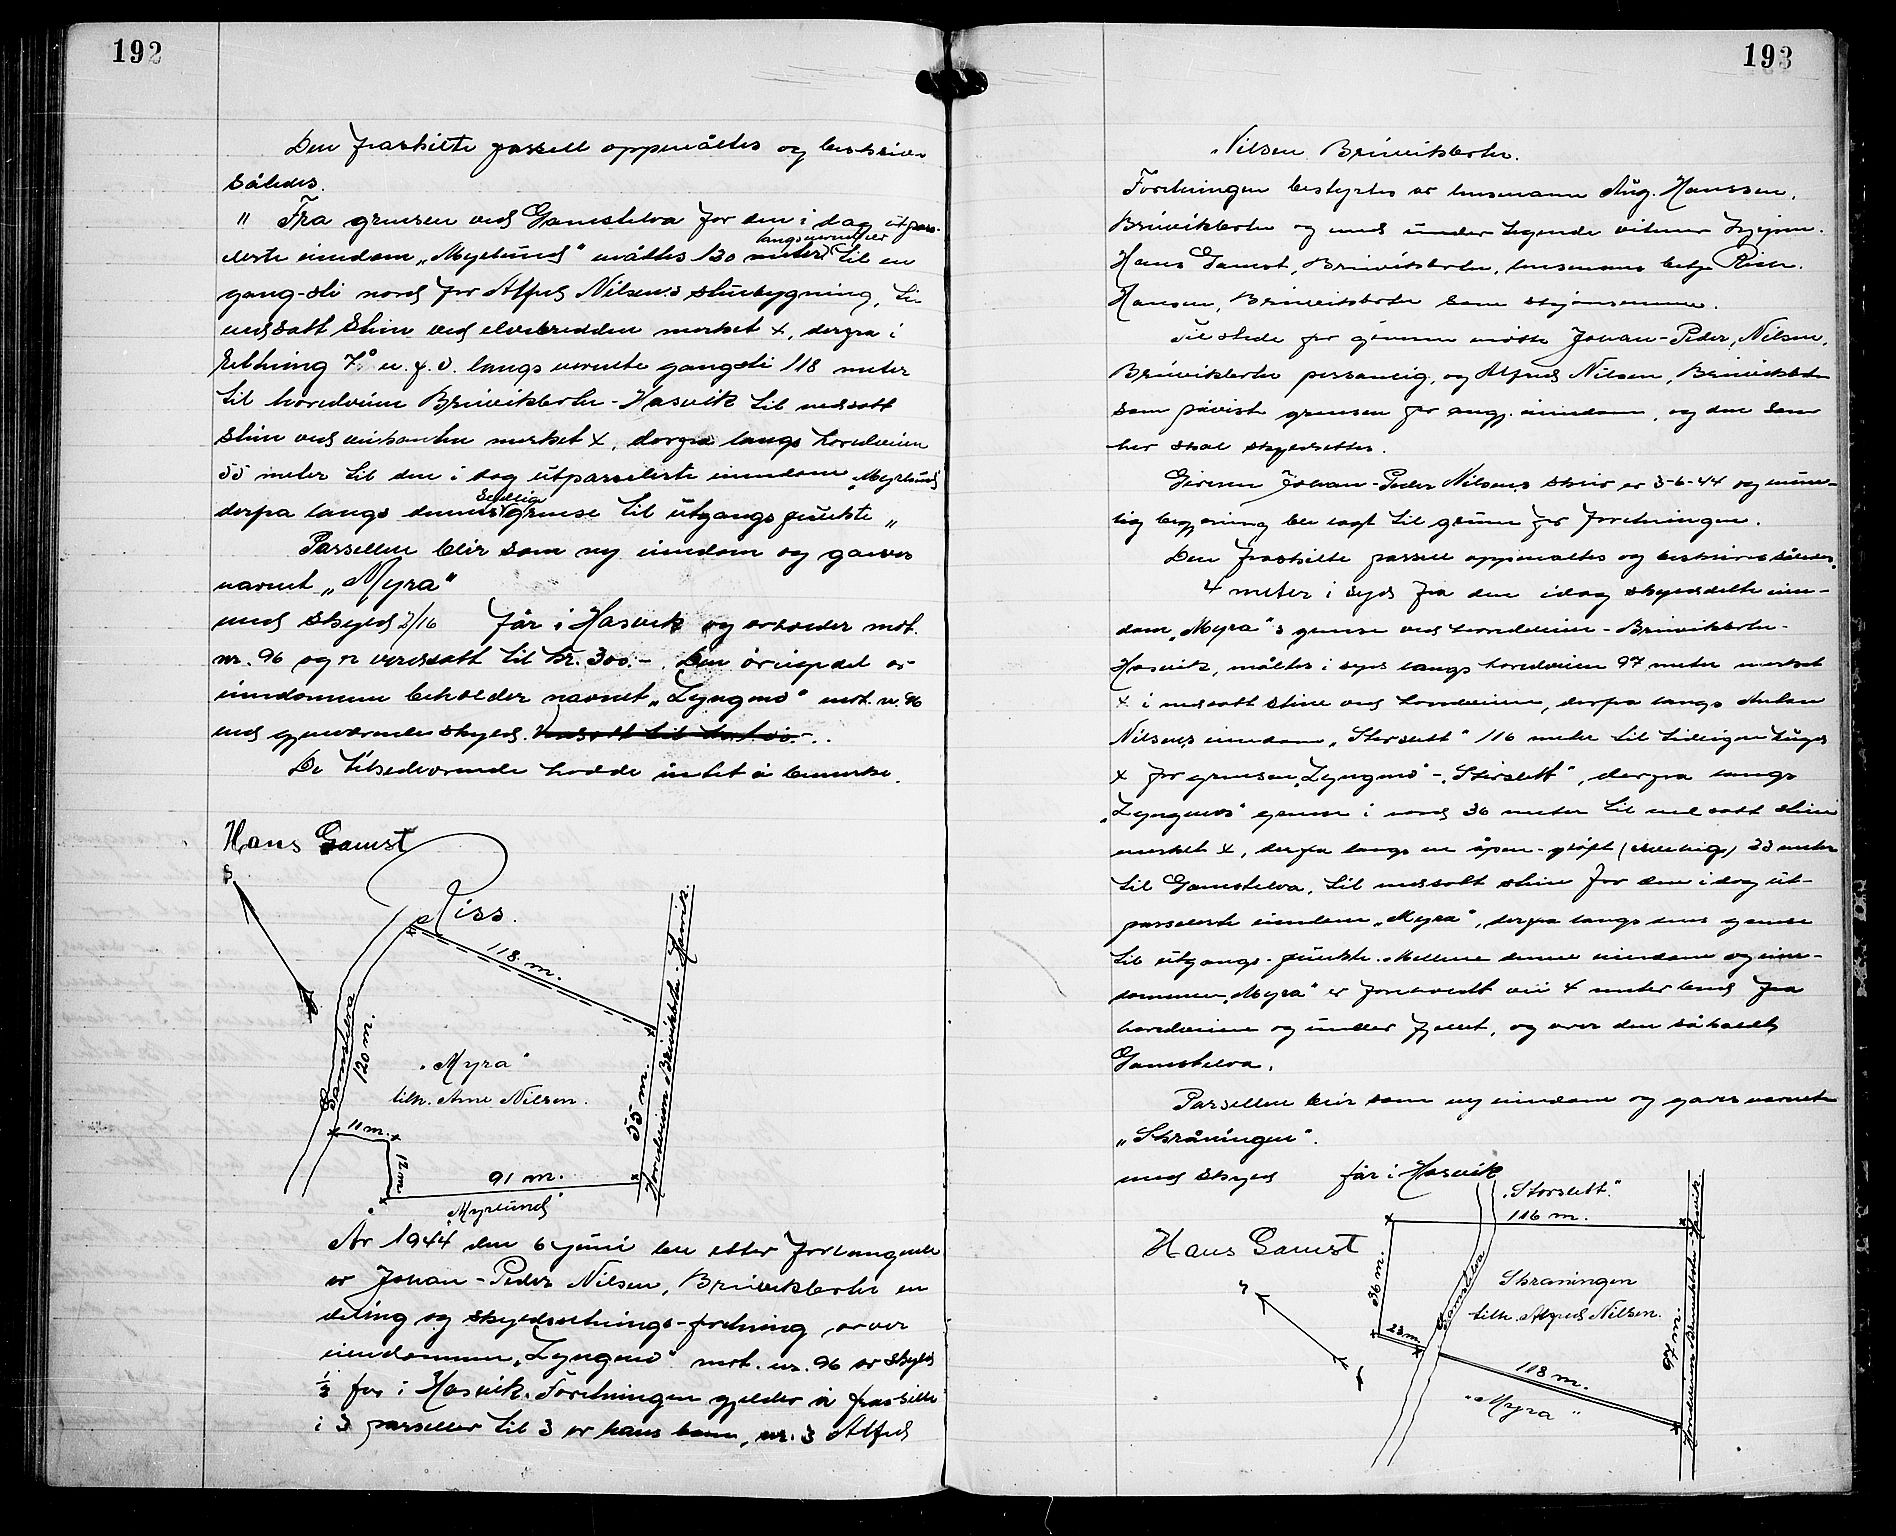 192
Den fraskilte parsell oppmåltes og beskrives
således.
" Fra grensen ved Gamstelva for den i dag utpar-
langs nevnte elv
selerte eiendom „Myrlund" måltes 120 meter til en
gang-sti nord for Alfred Nilsens stuebygning, til
nedsatt stein ved elvebredden merket x, derfra i
retning 7° n.f.o. langs nevnte gangsti 118 meter
til hovedveien Breivikbotn - Hasvik til nedsatt
stein ved veikanten merket x, derfra langs hovedveien
55 meter til den i dag utparselerte eiendom „Myrlund"
sydlige
derfra langs dennes grense til utgangspunkte "
Parsellen blir som ny eiendom og gaves
navnet „Myra"
med skyld 2/16 før i Hasvik og avhender mat.
nr. 96 og er verdsatt til kr. 300.-. Den øvrige del av
eiendommen beholder navnet „Lyngmo" mat. nr. 96
med gjenværende skyld.
De tilstedeværende hadde intet å bemerke.
Hans Gamst
Riss.
S
118 m.
Gamstelva
120 m.
„Myra"
tilh. Arne Nilsen.
55 m.
Hovedveien Breivikbotn - Hasvik.
11 m.
12 m
91 m.
„Myrlund"
År 1944 den 6 juni ble etter forlangende
av Johan-Peder Nilsen, Breivikbotn en
deling og skyldsetnings-fretning over
eiendommen „Lyngmo" mat. nr. 96 av skyld
1/2 før i Hasvik. Forretningen gjelder å fraskille
i 3 parseller til 3 av hans barn, nr. 3 Alfred
193
Nilsen Breivikbotn.
Forretningen bestyrtes av lensmann Aug. Hanssen,
Breivikbotn og med undertegnede vitner
Hans Gamst, Breivikbotn, lensmans betj. Rich.
Hansen, Breivikbotn som skjønsmenn.
Til stede for giveren møtte Johan-Peder Nilsen,
Breivikbotn personlig, og Alfred Nilsen, Breivikbotn
som påviste grensen for angj. eiendom, og den som
her skal skyldsettes.
Giveren Johan-Peder Nilsens skriv av 3-6-44 og munt-
lig begjæring ble lagt til grunn for forretningen.
Den fraskilte parsell oppmåltes og beskrives således.
4 meter i syd fra den idag skylddelte eien-
dom „Myra"s grense ved hovedveien - Breivikbotn -
Hasvik, måltes i syd langs hovedveien 97 meter merket
x i nedsatt stein ved hovedveien, derfra langs Anton
Nilsens eiendom „Storslett" 116 meter til tidligere
x for grensen „Lyngmo" - „Storslett", derfra langs
„Lyngmos" grense i nord 36 meter til nedsatt stein
merket x, derfra langs en åpen-grøft 23 meter
til Gamstelva, til nedsatt stein for den i dag ut-
parselerte eiendom „Myra", derfra langs dens grense
til utgangs-punkte. Mellem denne eiendom og eien-
dommen „Myra" er forutsatt vei 4 meter bred fra
hovedveien og under fjellet, og over den såkaldte
Gamstelva.
Parsellen blir som ny eiendom og gaves navnet
„Skråningen".
med skyld før i Hasvik
Hans Gamst
„Storslett."
116 m.
36 m.
Gamstelva
Skraningen
tilh. Alfred Nilsen.
23 m
97 m.
118 m.
„Myra"
Hovedveien Breivikbotn - Hasvik.